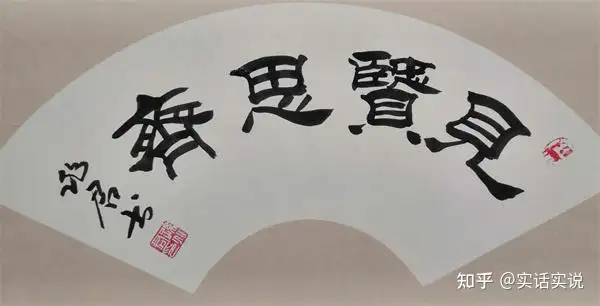 見賢思齊
知乎 @实话实说